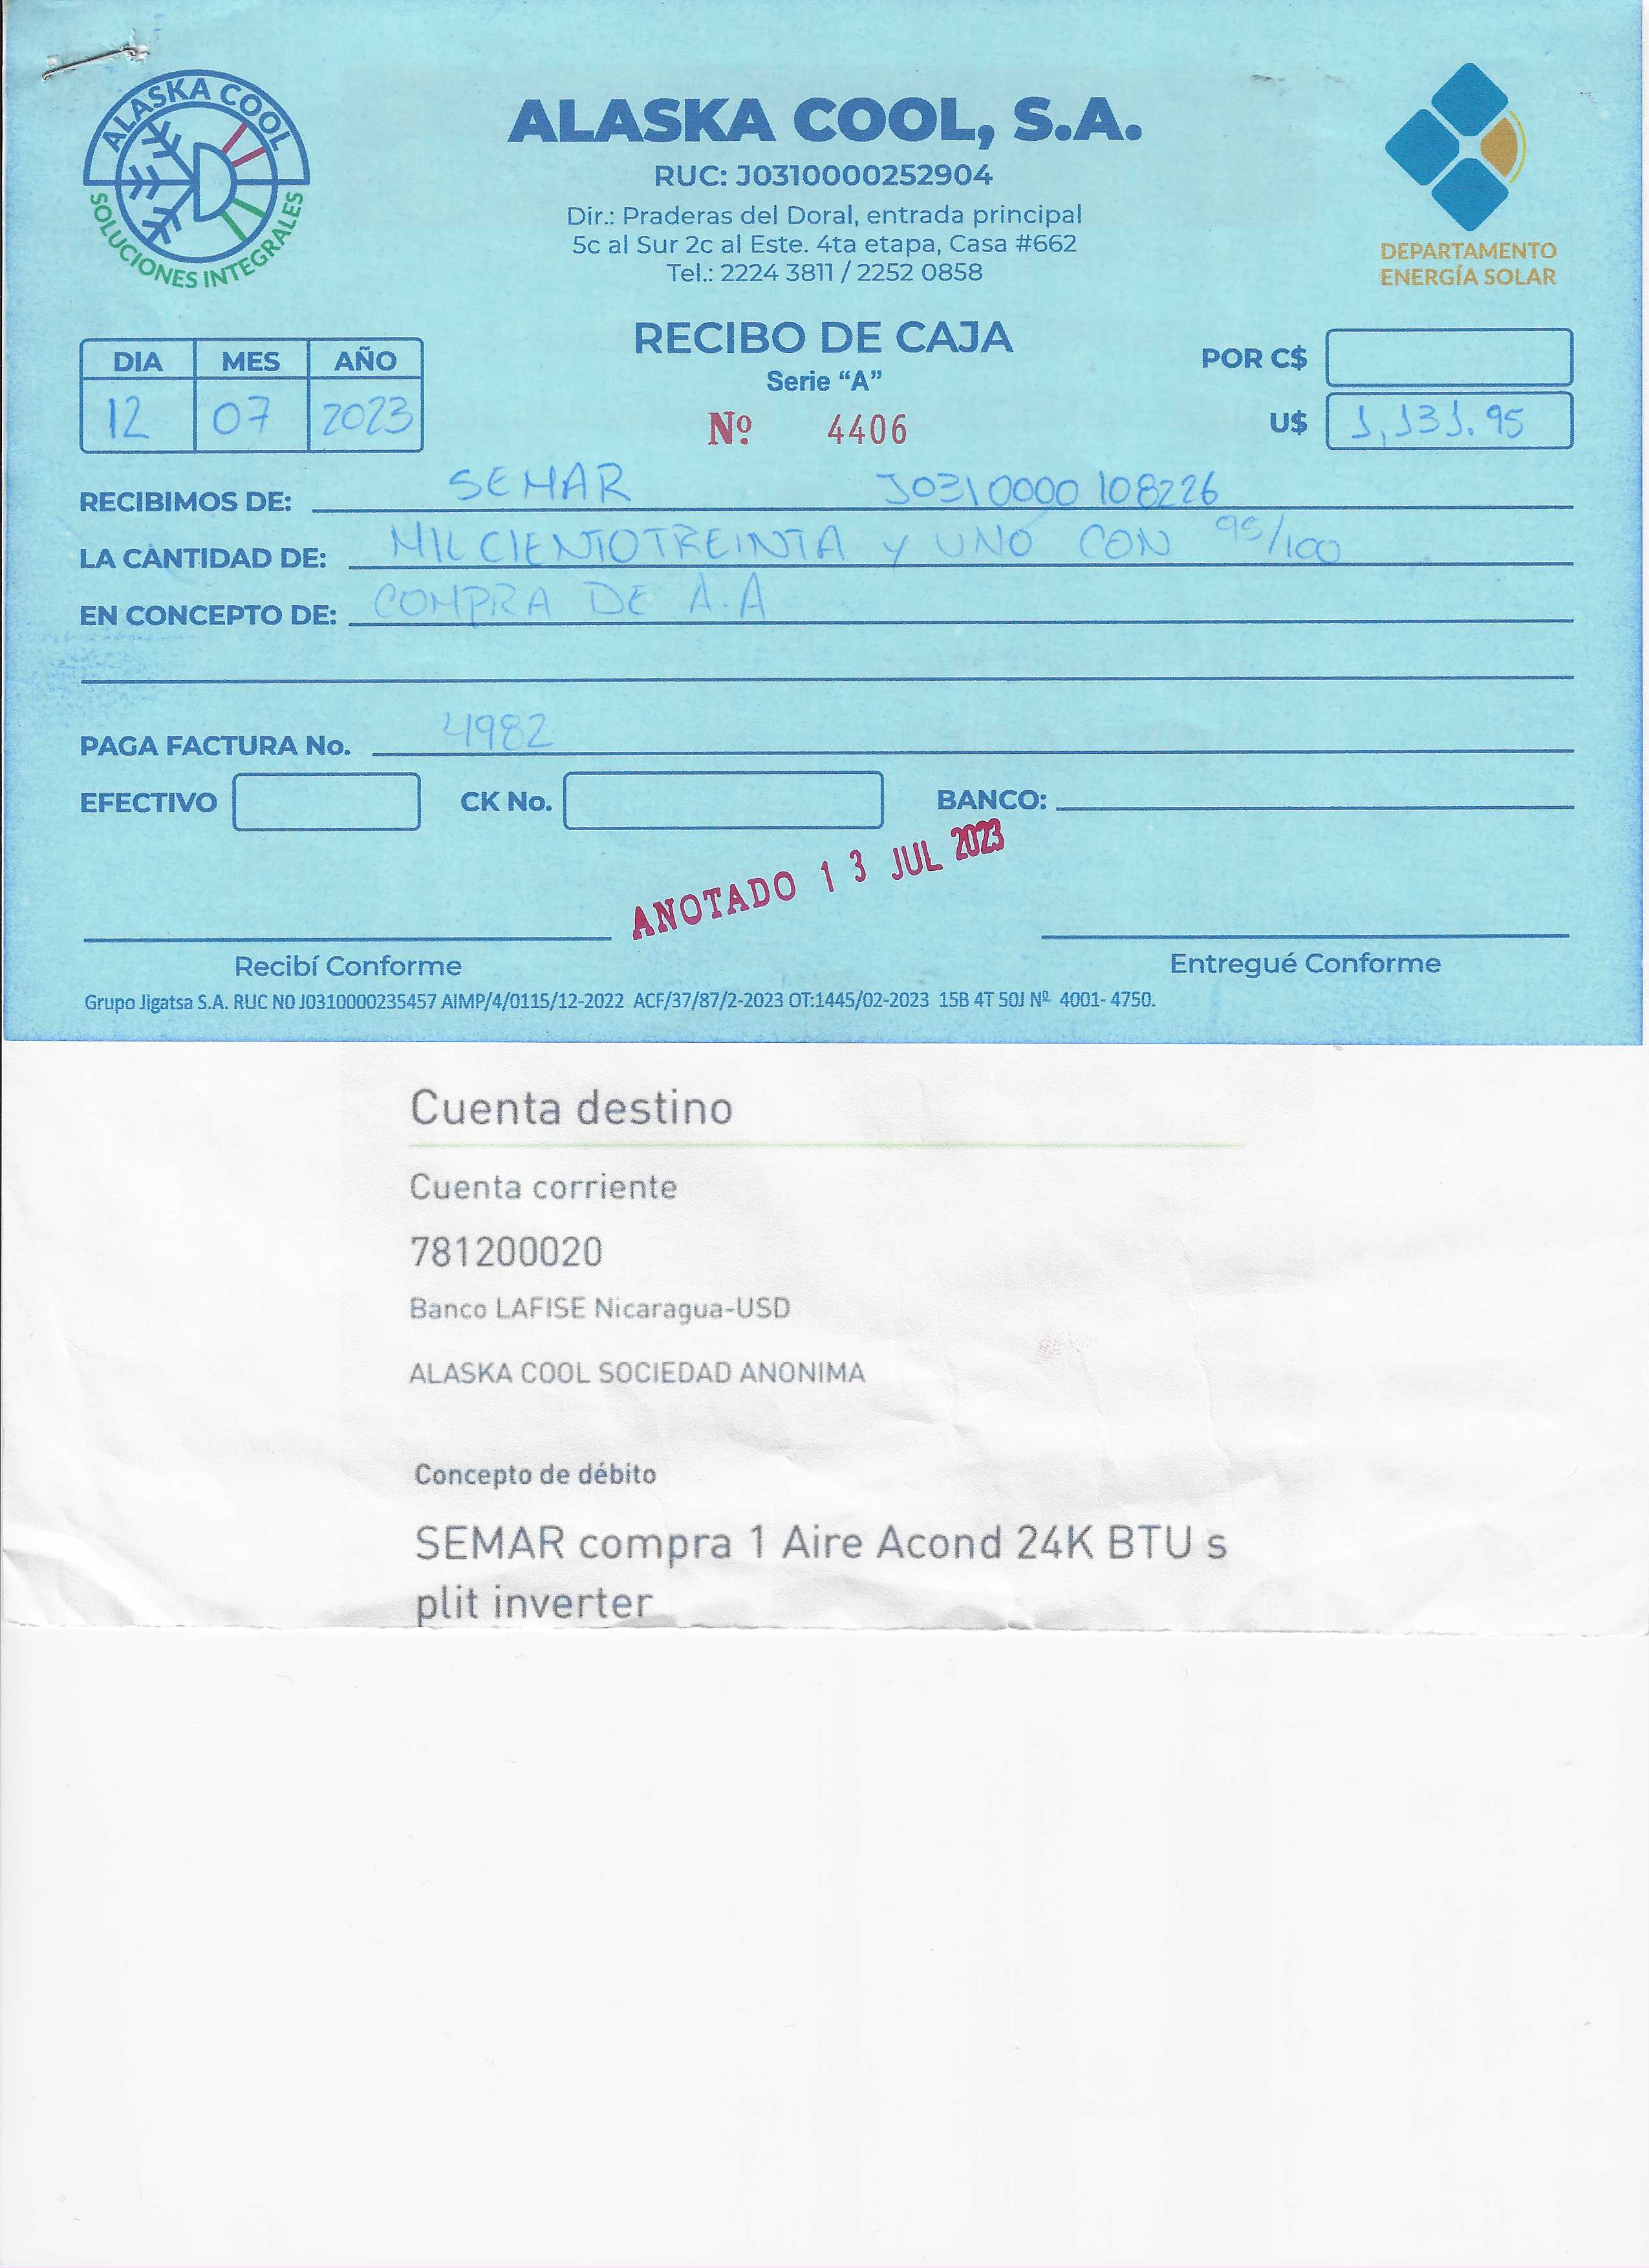 ALASKA COOL
SOLUCIONES INTEGRALES
ALASKA COOL, S.A.
RUC: J0310000252904
Dir.: Praderas del Doral, entrada principal
5c al Sur 2c al Este. 4ta etapa, Casa #662
Tel.: 2224 3811 / 2252 0858
DEPARTAMENTO
ENERGÍA SOLAR
RECIBO DE CAJA
Serie “A”
Nº 4406
DIA MES AÑO
12 07 2023
POR C$
U$ 1,131.95
RECIBIMOS DE: SEMAR J0310000108226
LA CANTIDAD DE: MIL CIENTOTREINTA Y UNO CON 95/100
EN CONCEPTO DE: COMPRA DE A.A
PAGA FACTURA No. 4982
EFECTIVO CK No. BANCO:
ANOTADO 13 JUL 2023
Recibí Conforme Entregué Conforme
Grupo Jigatsa S.A. RUC N0 J0310000235457 AIMP/4/0115/12-2022 ACF/37/87/2-2023 OT:1445/02-2023 15B 4T 50J Nº 4001- 4750.
Cuenta destino
Cuenta corriente
781200020
Banco LAFISE Nicaragua-USD
ALASKA COOL SOCIEDAD ANONIMA
Concepto de débito
SEMAR compra 1 Aire Acond 24K BTU s
plit inverter